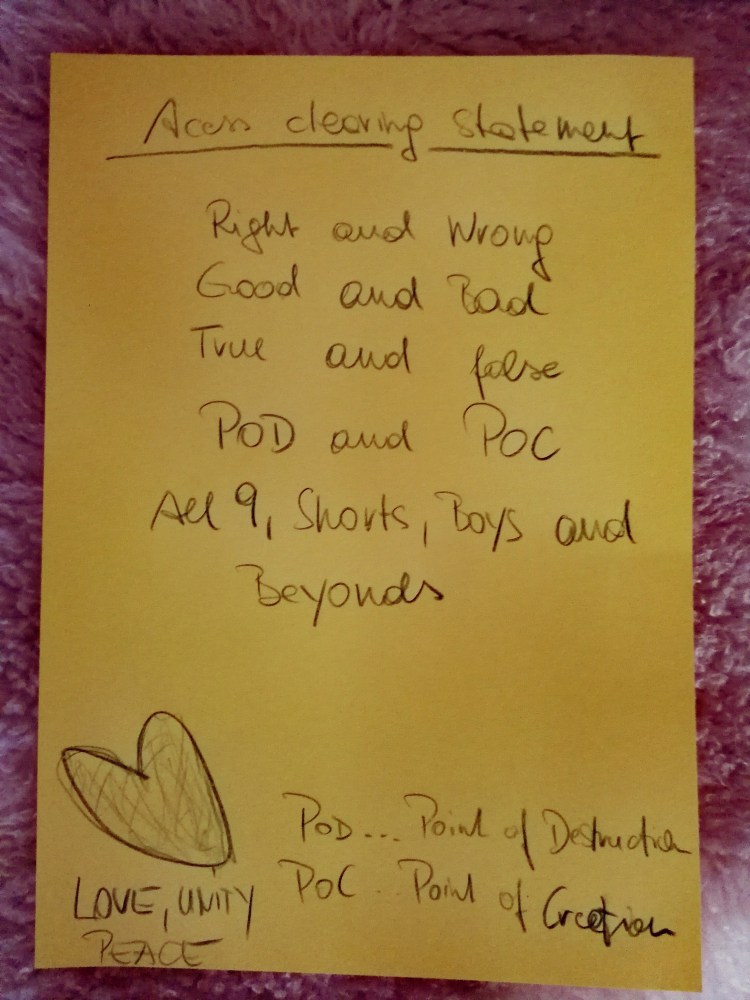 Access clearing statement
Right and Wrong
Good and Bad
True and false
POD and POC
All 9, Shorts, Boys and
Beyonds
POD... Point of Destruction
POC.. Point of Creation
LOVE, UNITY
PEACE